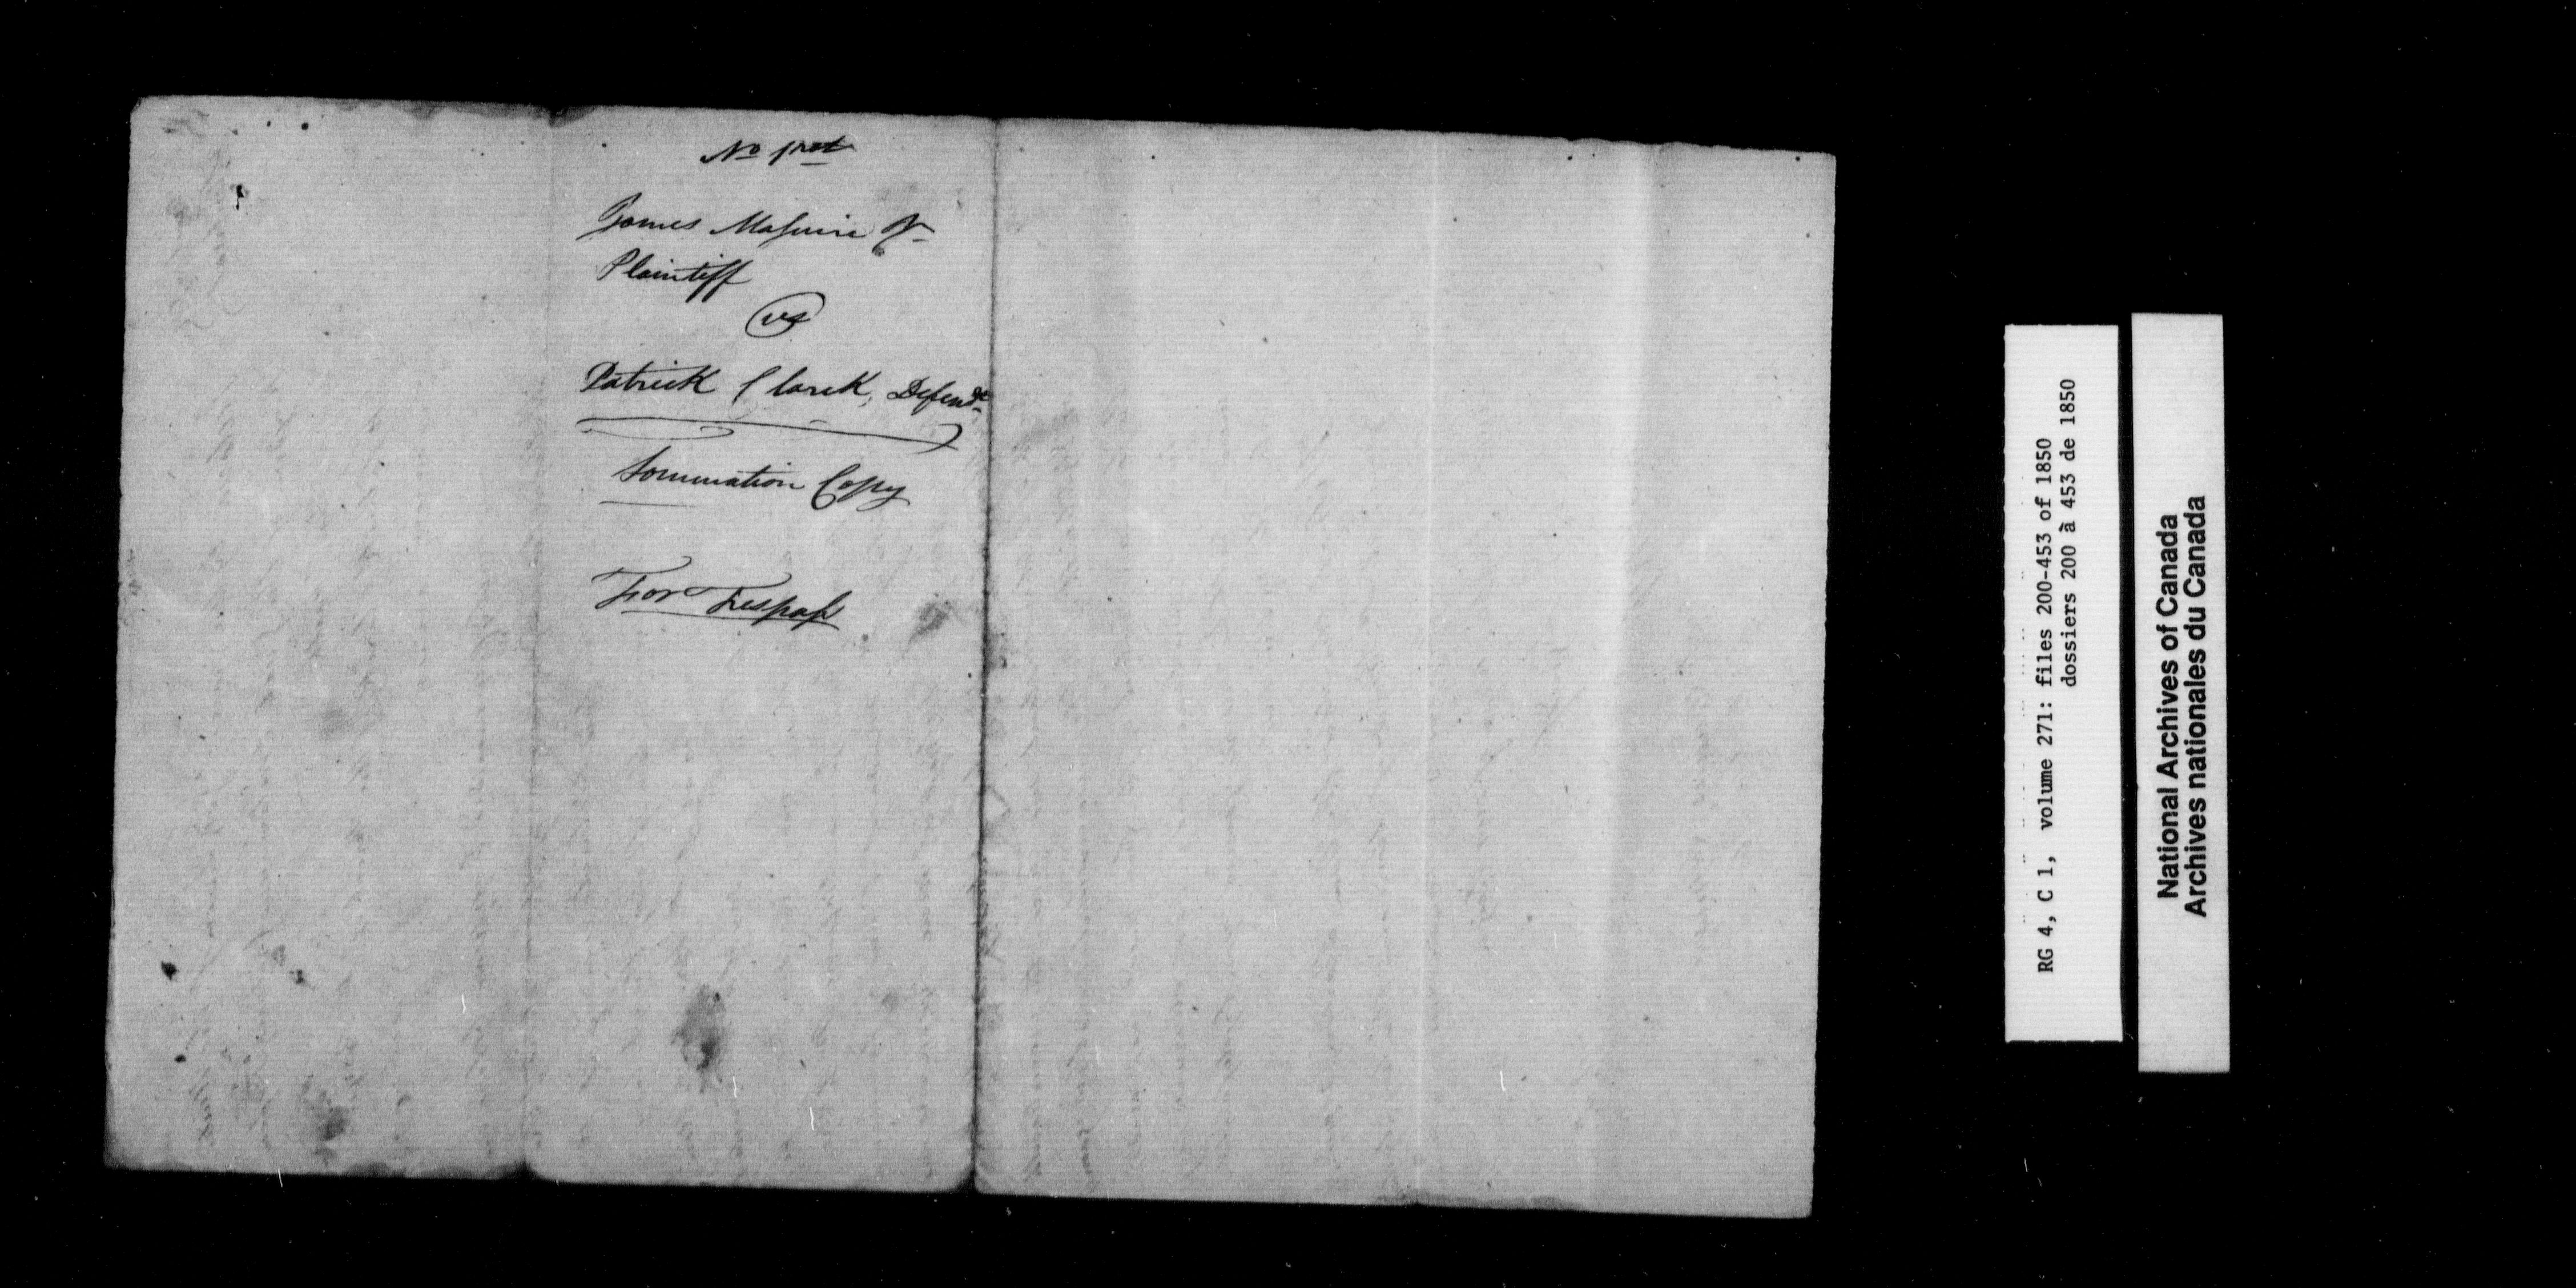 No
James Maguire Jr
Plaintiff
vs
Patrick Clark, Defendt
Sommation Copy
For Trespass
RG 4, C 1, volume 271: files 200-453 of 1850
dossiers 200 à 453 de 1850
National Archives of Canada
Archives nationales du Canada